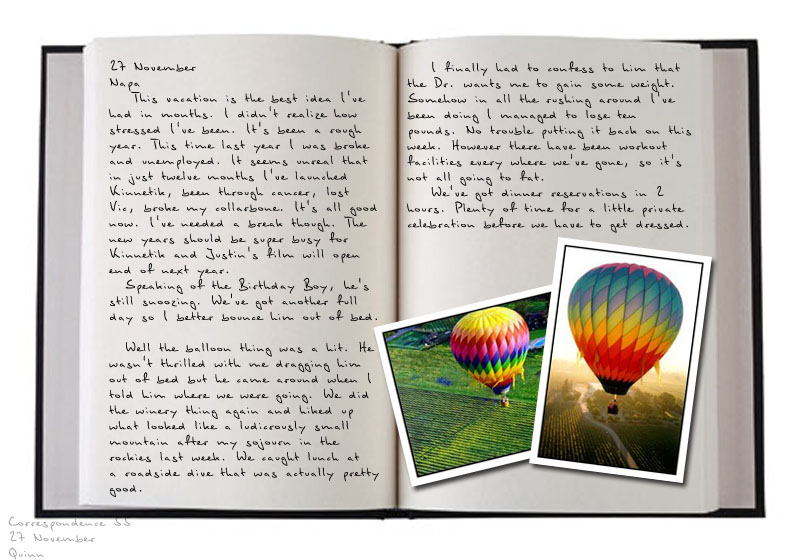 27 November
Napa
This vacation is the best idea I've
had in months. I didn't realize how
stressed I've been. It's been a rough
year. This time last year I was broke
and unemployed. It seems unreal that
in just twelve months I've launched
Kinnetik, been through cancer, lost
Vic, broke my collarbone. It's all good
now. I've needed a break though. The
new years should be super busy for
Kinnetik and Justin's film will open
end of next year.
Speaking of the Birthday Boy, he's
still snoozing. We've got another full
day so I better bounce him out of bed.
Well the balloon thing was a hit. He
wasn't thrilled with me dragging him
out of bed but he came around when I
told him where we were going. We did
the winery thing again and hiked up
what looked like a ludicrously small
mountain after my sojourn in the
rockies last week. We caught lunch at
a roadside dive that was actually pretty
good.
I finally had to confess to him that
the Dr. wants me to gain some weight.
Somehow in all the rushing around I've
been doing I managed to lose ten
pounds. No trouble putting it back on this
week. However there have been workout
facilities every where we've gone, so it's
not all going to fat.
We've got dinner reservations in 2
hours. Plenty of time for a little private
celebration before we have to get dressed.
Correspondence SS
27 November
Quinn